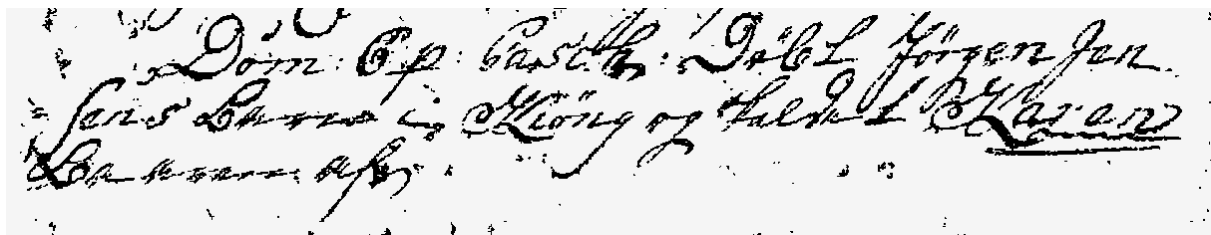 Dom: Ep: Pasch: Döbt Jörgen Jen
sens Barn i Kiöng og kaldet Karen